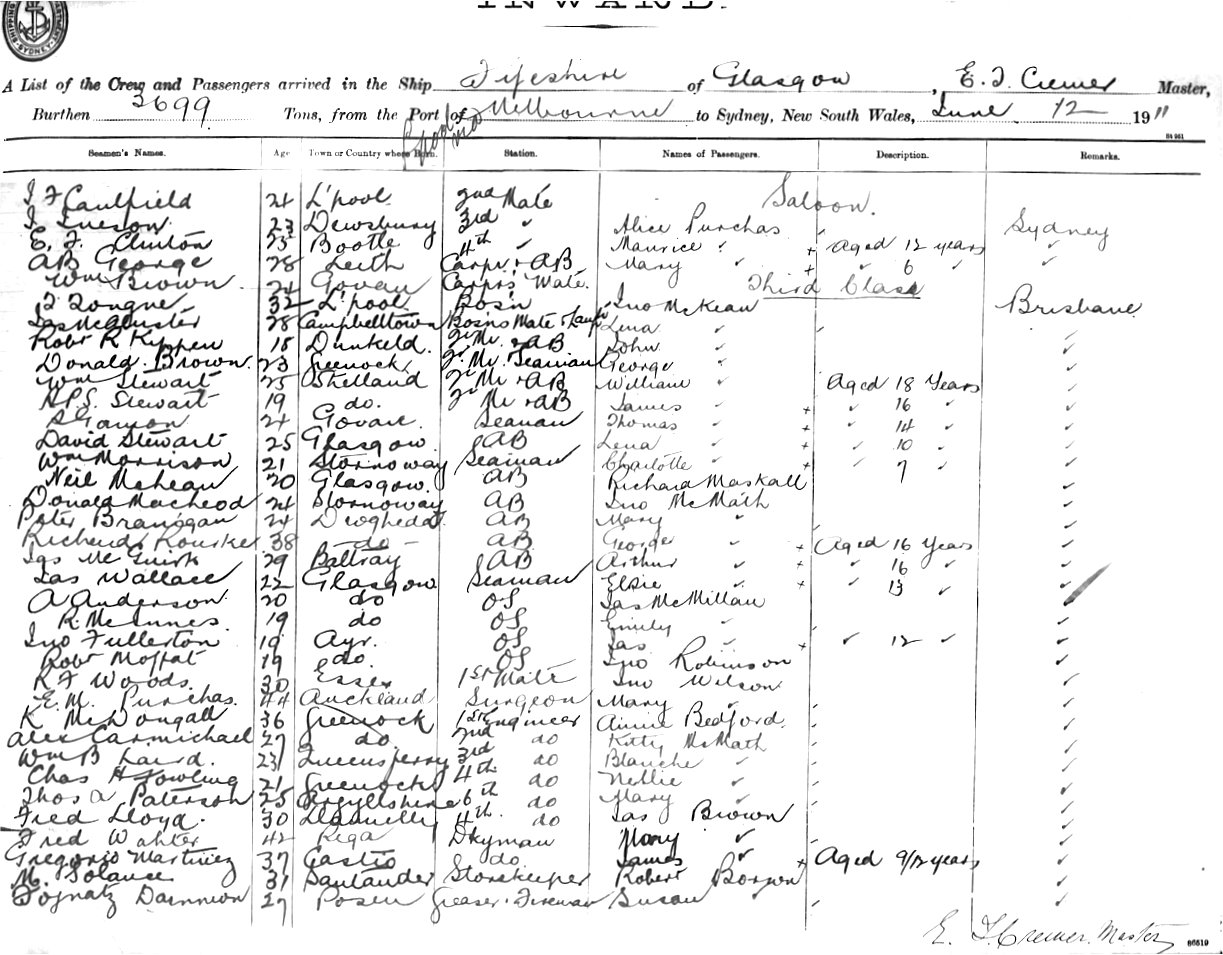 INWARD.
A List of the Crew and Passengers arrived in the Ship Fifeshire of Glasgow, E. F. Cremer Master,
Burthen 3699 Tons, from the Port of L'pool via Melbourne to Sydney, New South Wales, June 12 1911
84 961
Seamen's Names. Age Town or Country where Born. Station. Names of Passengers. Description. Remarks.
Saloon.
Caulfield 24 L'pool 2nd Mate
23 Dewsbury 3rd " Alice Purchas Sydney
E. F. Clinton 25 Bootle 4th " Maurice " + Aged 12 years "
AB George 28 Leith Carpr + AB Mary " + " 6 "
Wm Brown 24 Govan Carprs Mate. Third Class
32 L'pool Bos'n Jno McKean Brisbane
Jas McAlister 28 Campbelltown Bosns Mate Lena "
Robt R Kippen 18 Dunkeld. Qr Mr. + AB John "
Donald Brown 23 Greenock Qr. Mr. Seaman George "
Wm Stewart 25 Shetland Qr Mr + AB William " Aged 18 Years
H.P.S. Stewart 19 do. Qr Mr + AB James " + " 16 "
24 Govan. Seaman Thomas " + " 14 "
David Stewart 25 Glasgow. AB Lena " + " 10 "
Wm Morrison 21 Stornoway Seaman Charlotte " + " 7 "
Neil McLean 20 Glasgow. AB Richard Maskall
Donald Macleod 24 Stornoway AB Jno McMath
Peter Branigan 24 Drogheda AB Mary "
Richard Rourke 38 do AB George " + Aged 16 Years
Jas McGuirk 29 Baltray AB Arthur " + " 16 "
Jas Wallace 22 Glasgow Seaman Elsie " + " 13 "
A Anderson 20 do OS Jas McMillan
R. McInnes. 19 do OS Emily "
Jno Fullerton 19 Ayr. OS Jas " + " 12 "
Robt Moffat 19 do. OS Jno Robinson
R F Woods. 30 Essex 1st Mate Jno Wilson
E. M. Purchas. 44 Auckland Surgeon Mary "
K McDougall 36 Greenock 1st Engineer Annie Bedford.
Alex Carmichael 27 do. 2nd do Kitty McMath
Wm B Laird. 23 Queensferry 3rd do Blanche "
Chas H Fowling 21 Greenock 4th do Nellie "
Thos A Paterson 25 Argyllshire 6th do Mary "
Fred Lloyd. 30 Llanelly 4th. do Jas Brown
Fred Walter 42 Riga Dkyman Mary "
Gregorio Martinez 37 Castro do. James " + Aged 9/12 years
M. Solance 31 Santander Storekeeper Robert
27 Posen Greaser. Fireman Susan "
E. F. Cremer. Master
86519